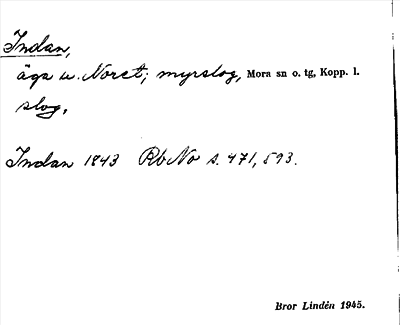 Indan,
äga u. Noret; myrslog, Mora sn o. tg, Kopp. l.
slog,
Indan 1843 Rb No s. 471, 593.
Bror Lindén 1945.